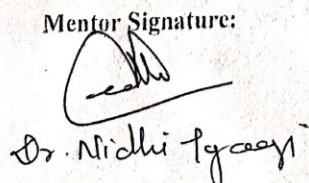 Mentor Signature:
Dr. Nidhi Tyagi